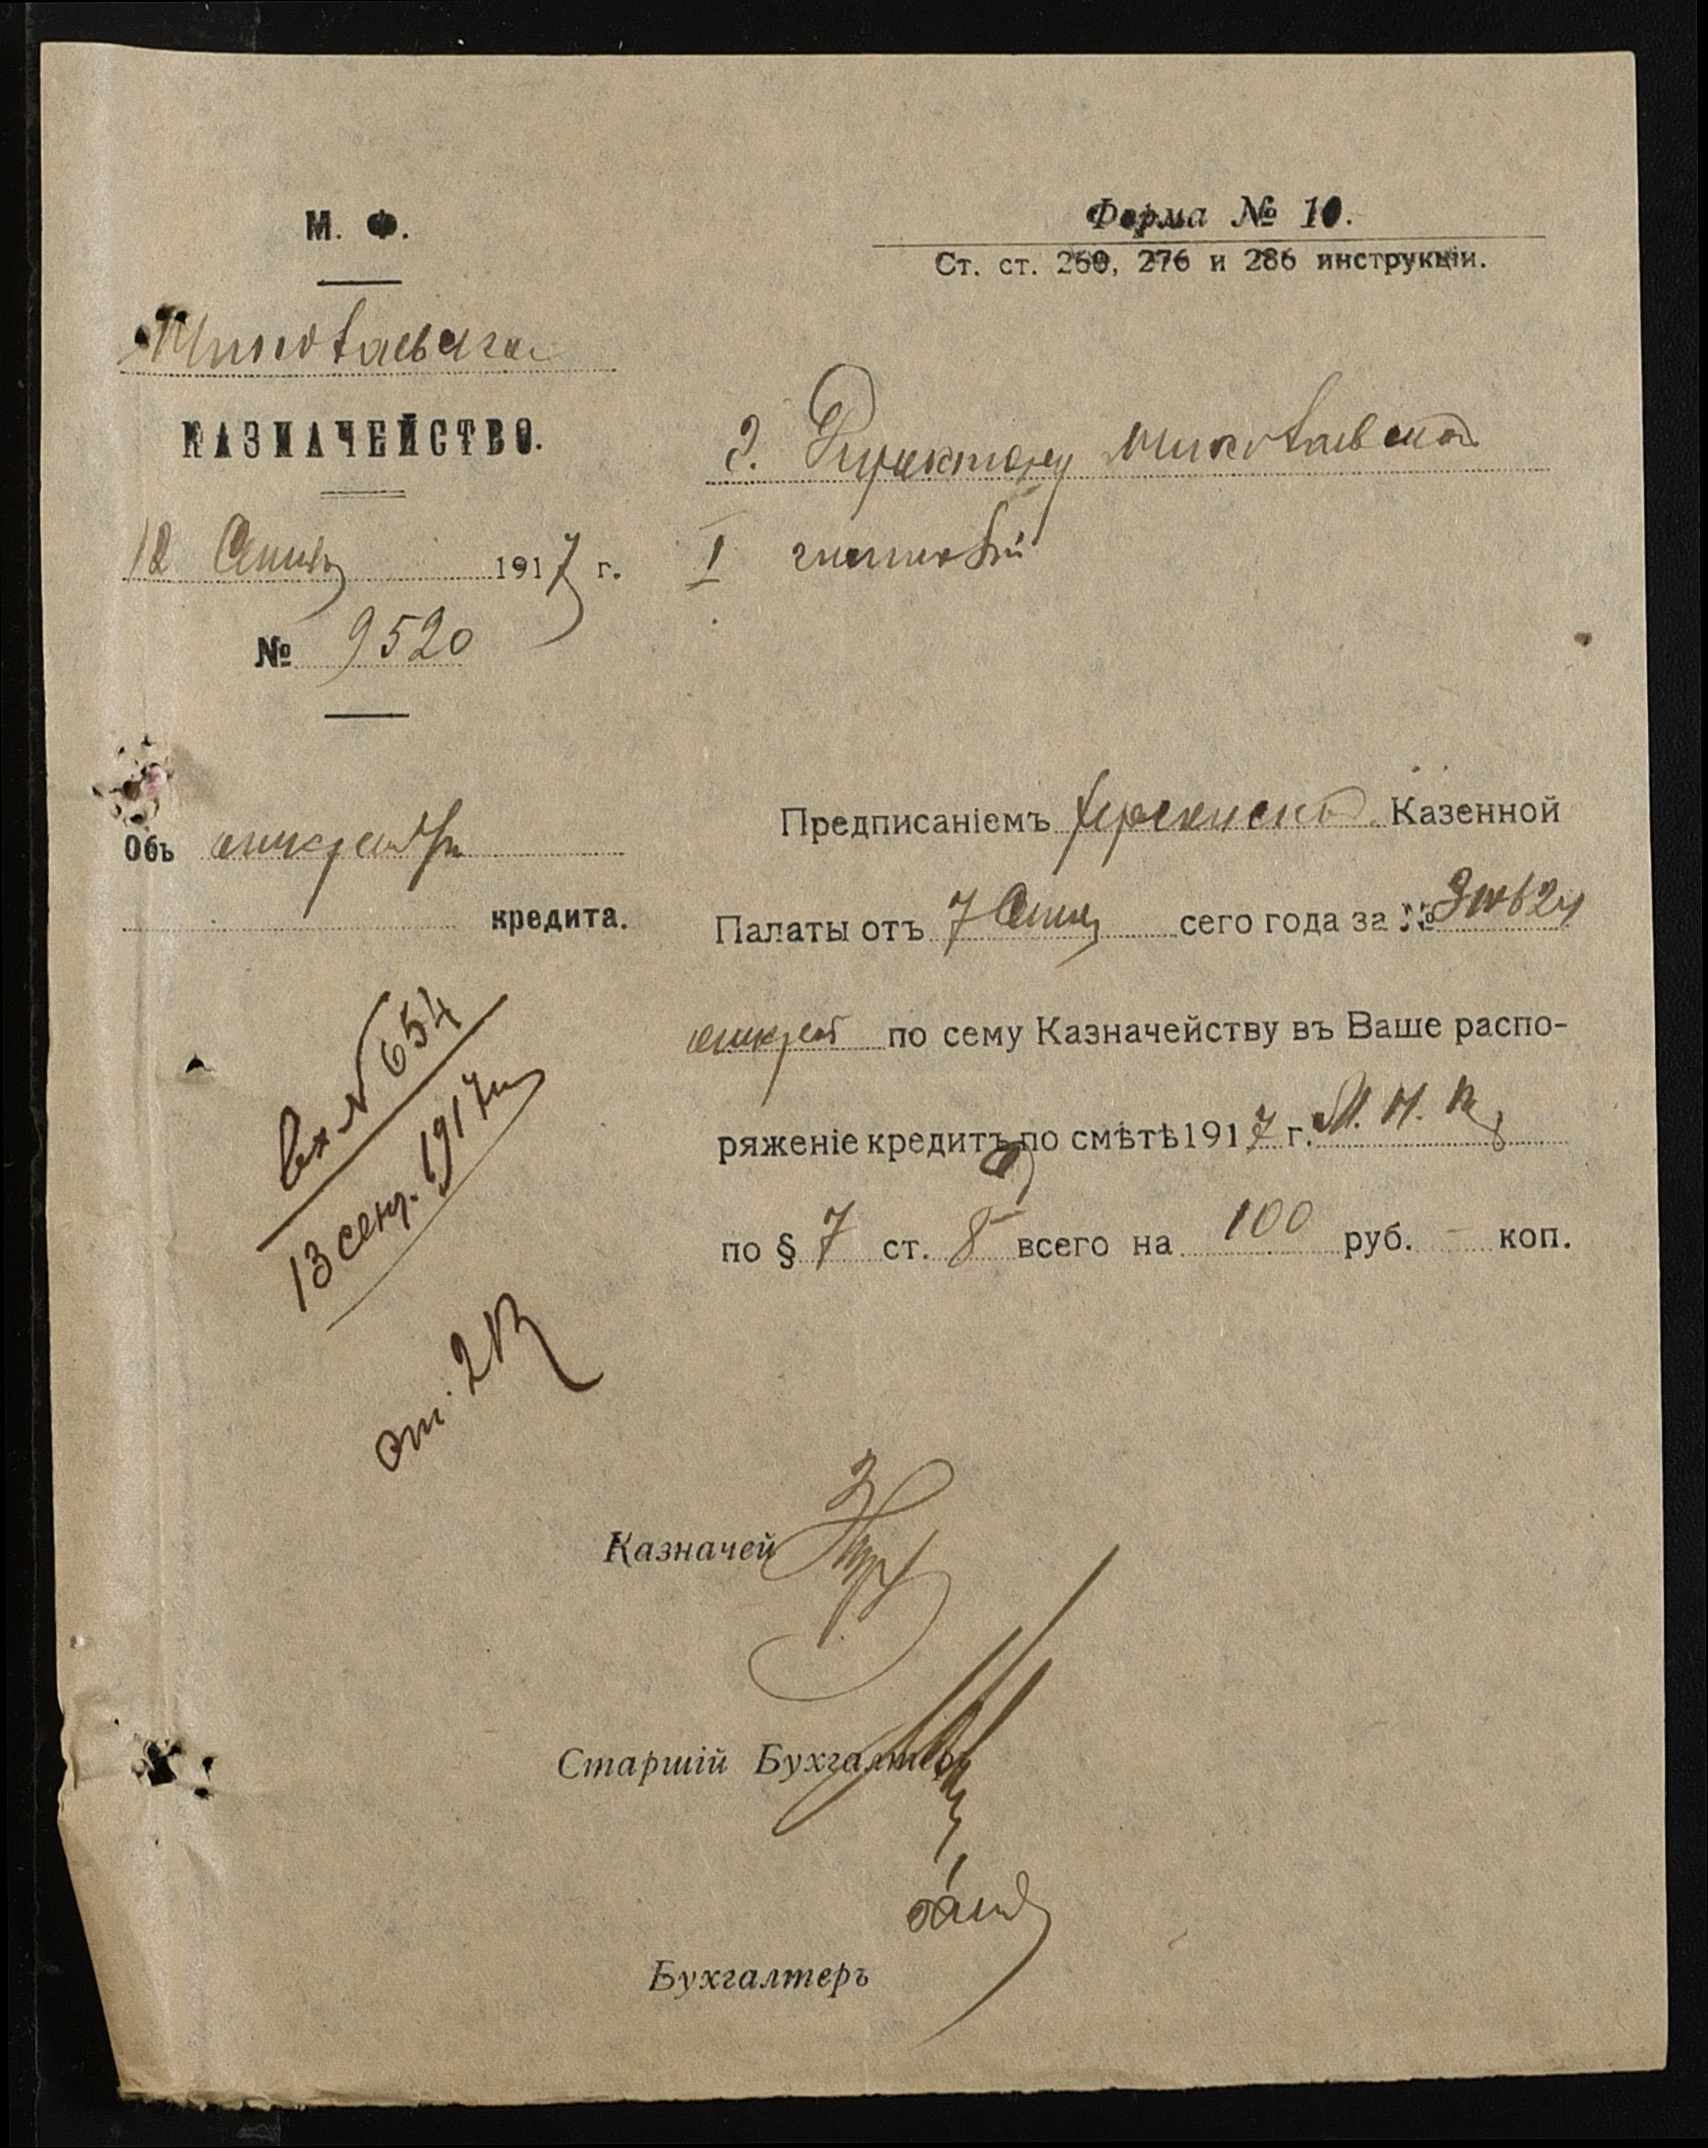 М. Ф.
Николаевское
КАЗНАЧЕЙСТВО.
12 Сентяб 1917 г.
№ 9520
Объ открытіи
кредита.
Вх № 654
13 сент. 1917 г.
Форма № 10.
Ст. ст. 260, 276 и 286 инструкціи.
Г. Директору Николаевской
I гимназіи
Предписаніемъ Херсонской Казенной
Палаты отъ 7 Сент сего года за №
открытъ по сему Казначейству въ Ваше распо-
ряженіе кредитъ по смѣтѣ 1917 г. М. Н. П
по § 7 ст. 8 всего на 100 руб. - коп.
Казначей
Старшій Бухгалтеръ
Бухгалтеръ